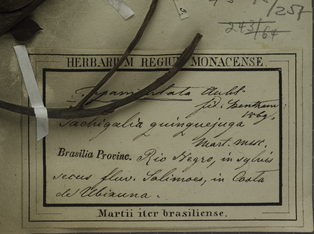 257
243/64
HERBARIUM REGIUM MONACENSE.
Aubl.
fid. Bentham
1869.
Tachigalia quinquejuga
Mart. msc.
Brasilia Provinc. Rio Negro, in sylvis
secus fluv. Solimoes, in Costa
de Ubixuna.
Martii iter brasiliense.